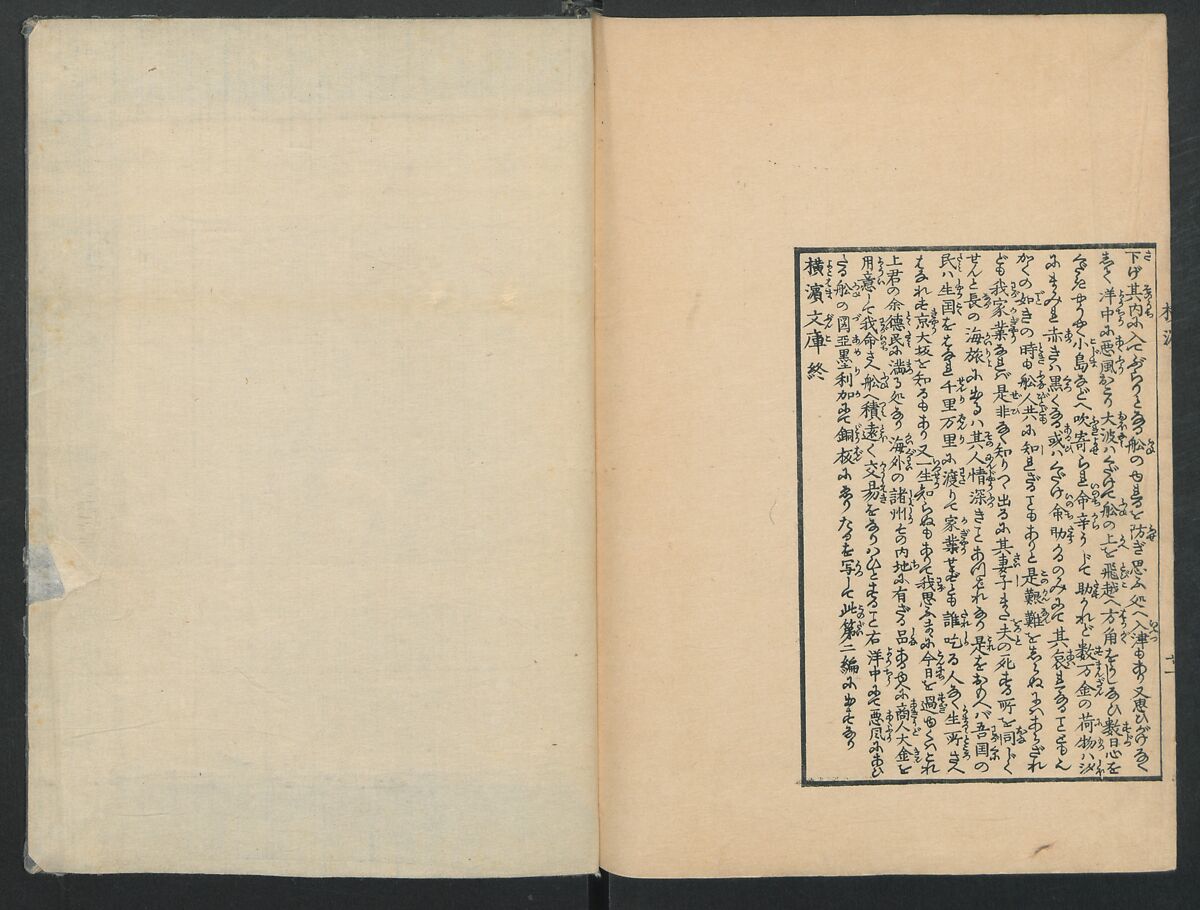 下げ其内に入てぶらりとなる船のゆれるを防ぎ思ふ処へ入津もあり又思ひがけなく
して洋中に悪風おこり大波はくだけて船の上を飛越へ方角をうしなひ数日心を
くだきやうやく小島などへ吹寄られ命辛々にて助かれど数万金の荷物は汐
にまみれ赤きは黒くなる或はくだけ命助かるのみにて其哀れなることもん
かくの如きの時も船人共に知れざることもありと是艱難をしらぬにはあらざれ
ども我家業なれば是非なく知りつゝ出るに其妻子また夫の死する所を同じく
せんと長の海旅に出るは其人情深きことあはれなり是をおもへば吾国の
民は生国をはなれ千里万里に渡りて家業せずとも誰叱る人なく生所さへ
はなれず京大坂を知るもあり又一生知らぬもありて我思ふまゝに今日を過ゆくはこれ
上君の余徳民に満る処なり海外の諸州その内地に有ざる品あるゆへに商人大金を
用意して我命さへ船へ積遠く交易をなりはひとすること右洋中にて悪風にあひ
たる船の図亜墨利加にて銅板になりたるを写して此第二編に出すなり
横濱文庫終